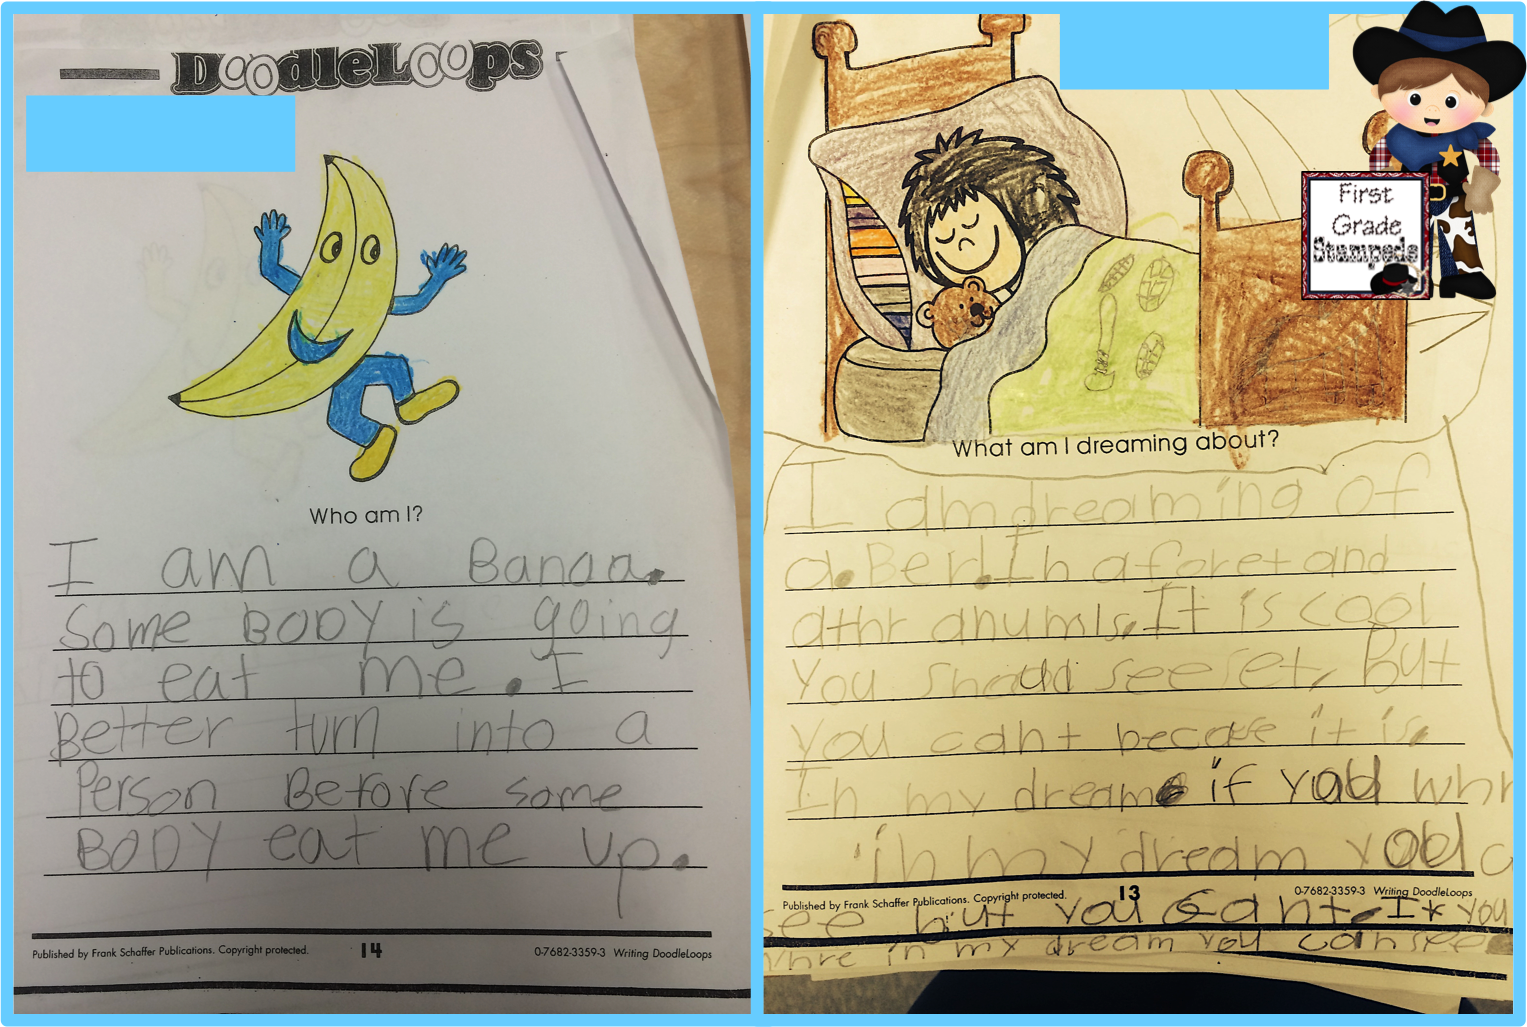 DoodleLoops
Who am I?
I am a Banaa.
Some BODY is going
to eat me. I
Better turn into a
Person Before some
BODY eat me up.
Published by Frank Schaffer Publications. Copyright protected.
14
0-7682-3359-3 Writing DoodleLoops
First
Grade
Stampede
What am I dreaming about?
I am dreaming of
a. Berd. In a foret and
athr anumls. It is cool
You should see et, But
You can't because it is,
In my dream if you whr
in my dream you c
Published by Frank Schaffer Publications. Copyright protected.
13
0-7682-3359-3 Writing DoodleLoops
see but you cant. If you
whre in my dream you can see